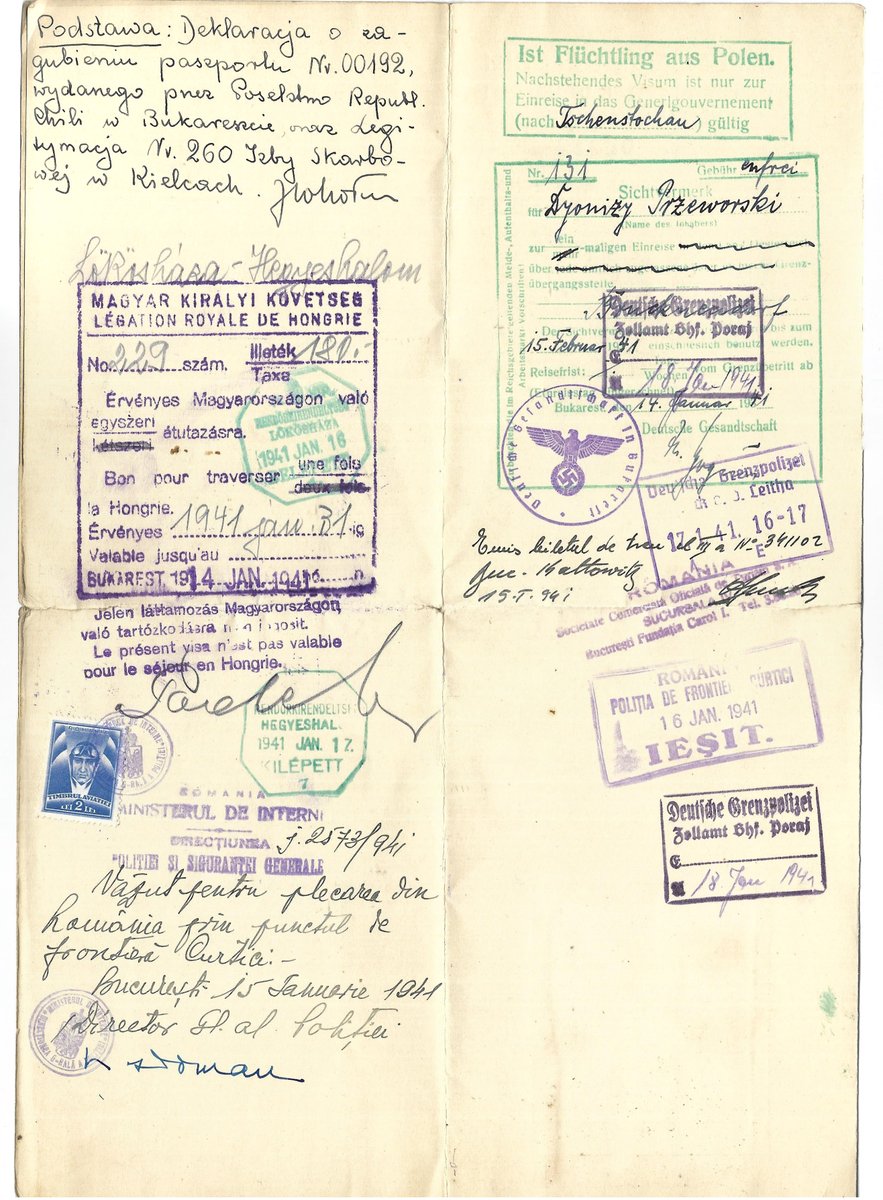 Podstawa: Deklaracja o za-
gubieniu paszportu Nr. 00192,
wydanego przez Poselstwo Republ.
Chili w Bukareszcie, oraz Legi-
tymacja Nr. 260 Izby Skarbo-
wej w Kielcach.
Lőkösháza - Hegyeshalom
MAGYAR KIRALYI KÖVETSÉG
LÉGATION ROYALE DE HONGRIE
No. 229 szám. Illeték 180.-
Taxa
Érvényes Magyarországon való
egyszeri
kétszeri átutazásra.
Bon pour traverser une fois
deux fois
la Hongrie.
Érvényes 1941 jan. 31 ig
Valable jusqu'au
BUKAREST, 1914 JAN. 1941
LŐKÖSHÁZA
1941 JAN 16
Jelen láttamozás Magyarországon
való tartózkodásra nem jogosit.
Le présent visa n'est pas valable
pour le séjour en Hongrie.
RENDŐRKIRENDELTSÉG
HEGYESHAL.
1941 JAN. 17.
KILÉPETT
7
TIMBRUL AVIATIEI
LEI 2 LEI
ROMANIA
MINISTERUL DE INTERNE
DIRECȚIUNEA J. 2573/941
POLITIEI SI SIGURANTEI GENERALE
Văzut pentru plecarea din
România prin punctul de
frontieră Curtici.-
București 15 Ianuarie 1941
Director Gl. al Poliției
Ist Flüchtling aus Polen.
Nachstehendes Visum ist nur zur
Einreise in das Generlgouvernement
(nach Tschenstochau) gültig
Nr. 131 Gebühr enfrei
Sichtvermerk
für Dyonizy Przeworski
(Name des Inhabers)
ein
zur mehr -maligen Einreise
über
übergangsstelle
15. Februar 41
Reisefrist: Wochen vom Grenzübertritt ab
Bukarest, den 14. Januar 1941
Deutsche Gesandtschaft
Deutsche Grenzpolizei
Zollamt Bhf. Poraj
E
A 18. Jan 1941
Deutsche Gesandtschaft in Bukarest
Deutsche Grenzpolizei
Bruck a. d. Leitha
17.1.41. 16-17
E
Emis biletul de tren cl. III a No. 341102
Buc - Kattowitz
15.I.941
ROMANIA
Societate Comercială Oficială de Turism S. A.
SUCURSALA
București Fundația Carol I. Tel.
ROMANIA
POLIȚIA DE FRONTIERĂ CURTICI
16 JAN. 1941
IEȘIT.
Deutsche Grenzpolizei
Zollamt Bhf. Poraj
E
A 18. Jan 1941